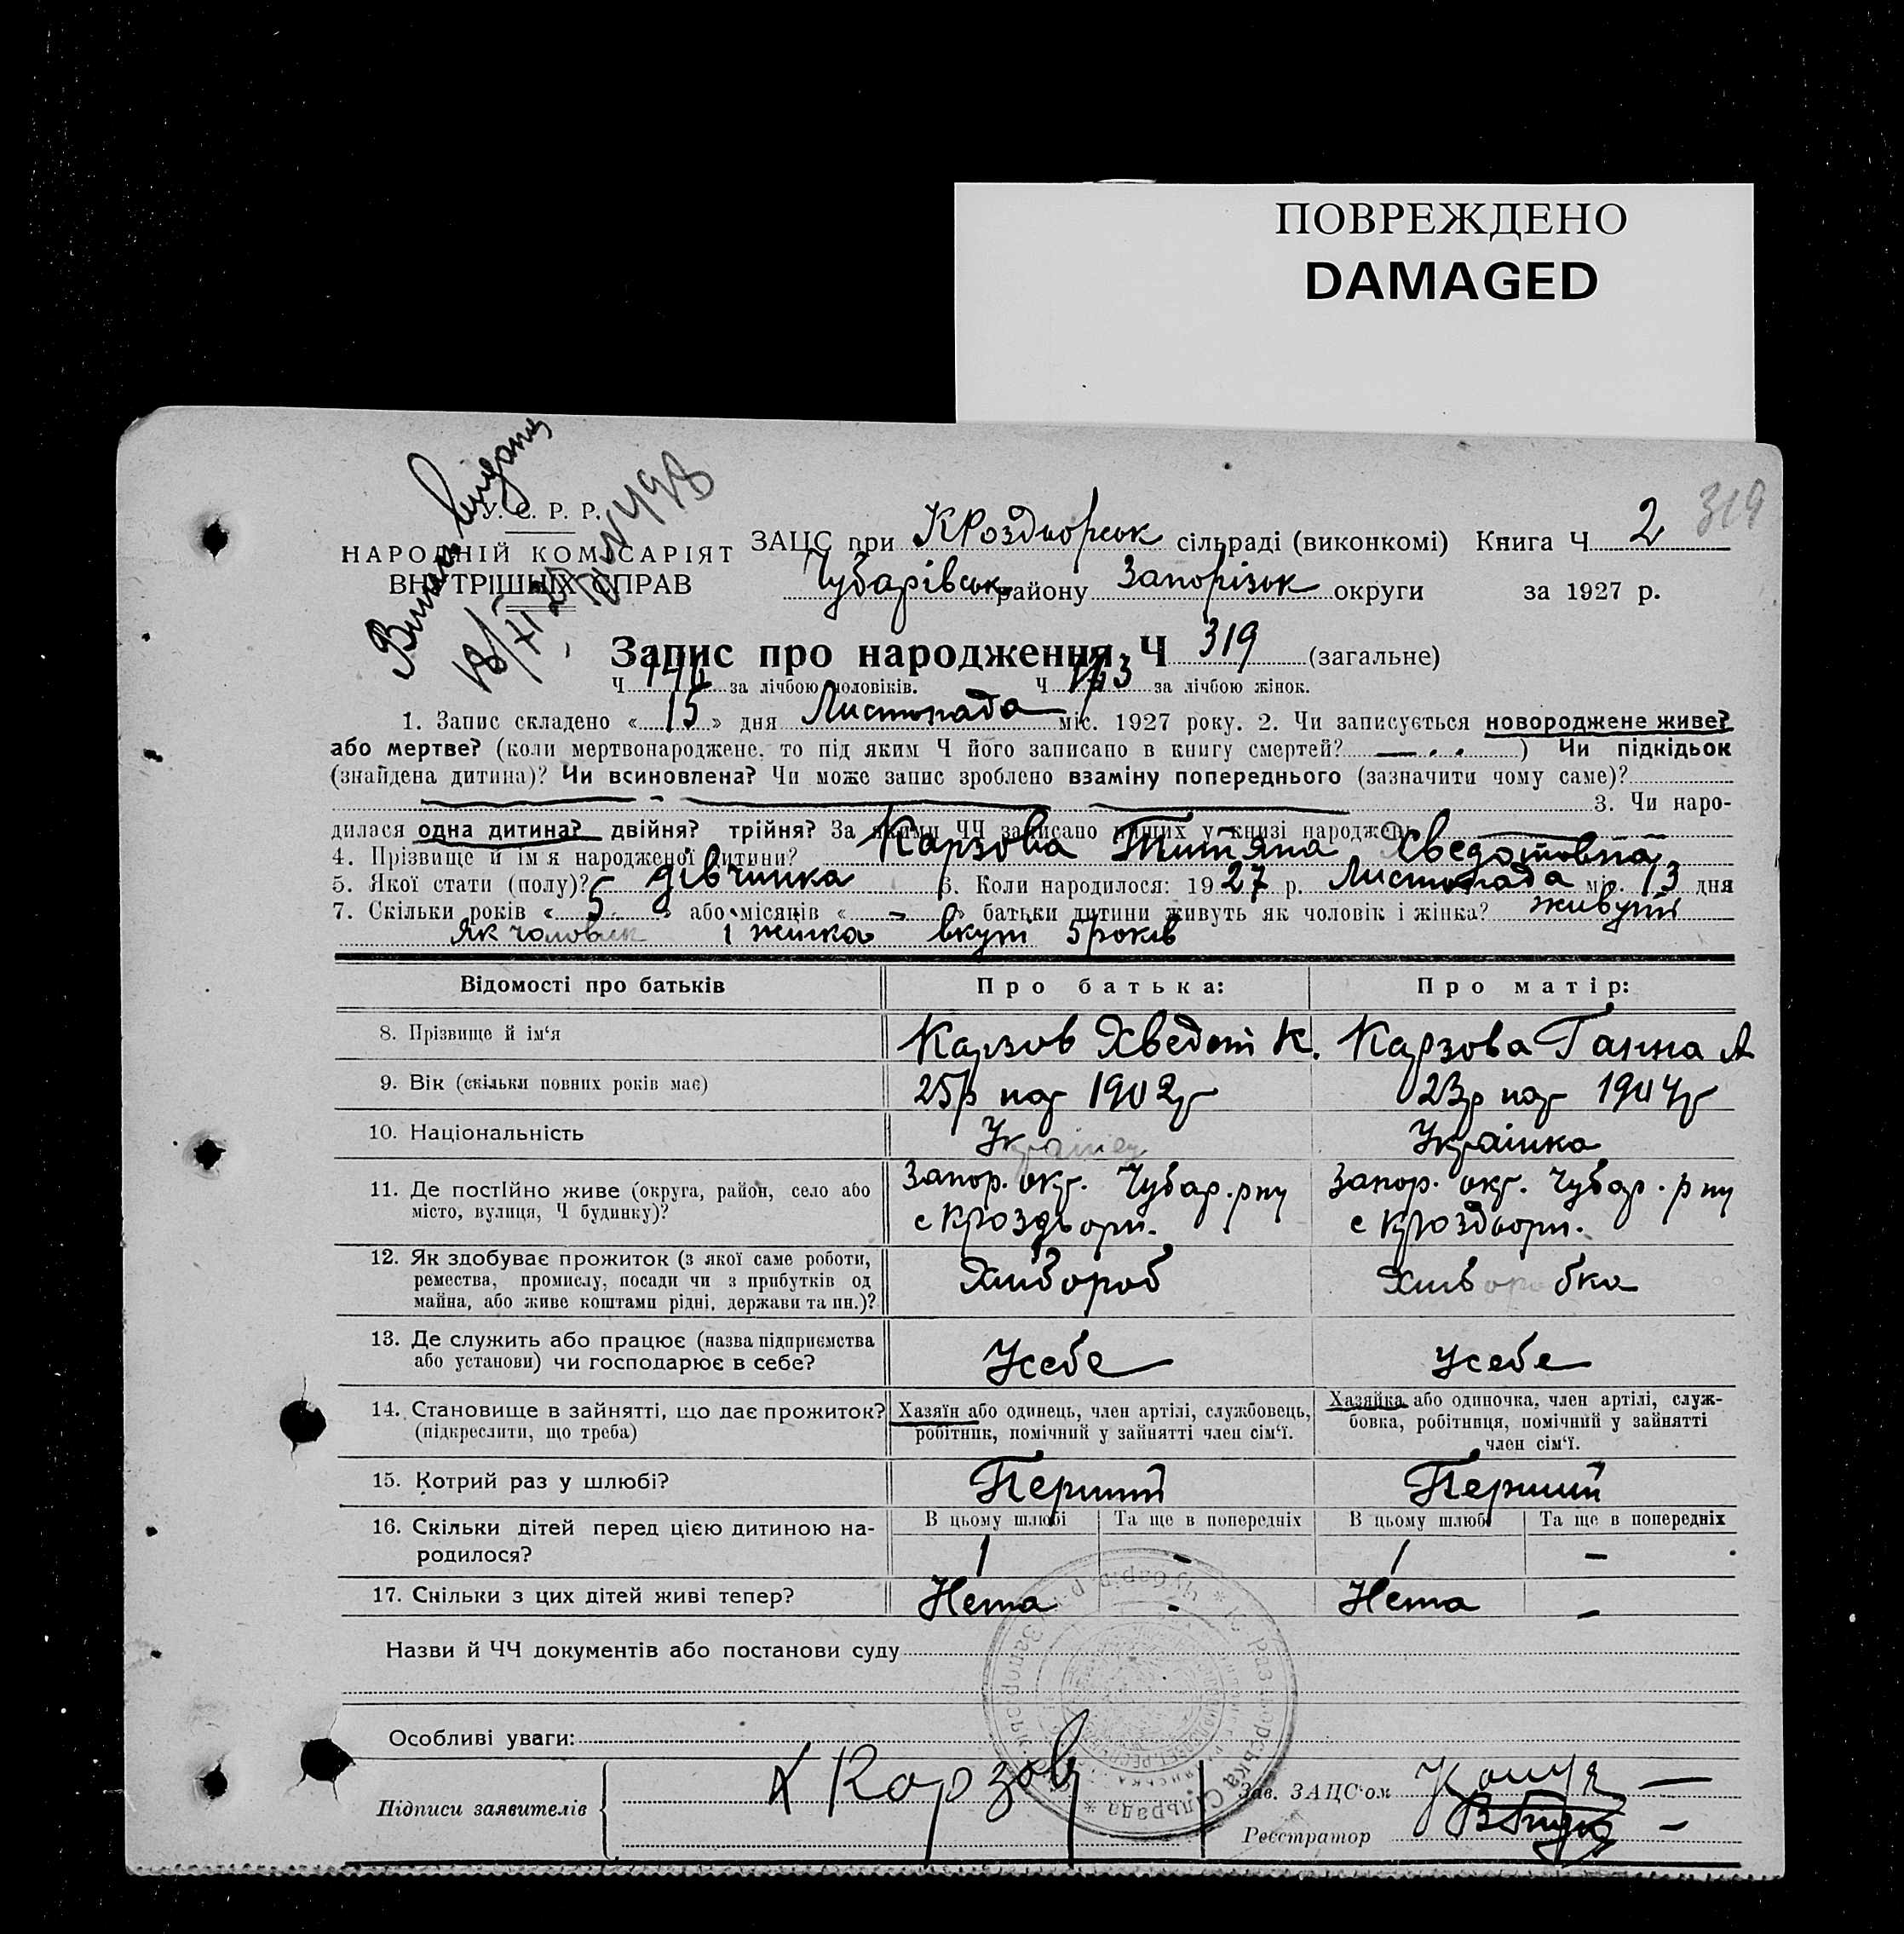 ПОВРЕЖДЕНО
DAMAGED
У. С. Р. Р.
НАРОДНІЙ КОМІСАРІЯТ
ВНУТРІШНІХ СПРАВ
319
ЗАЦС при К Роздорськ сільраді (виконкомі) Книга Ч 2
Чубарівськ району Запорізьк округи за 1927 р.
Запис про народження Ч 319 (загальне)
Ч 146 за лічбою чоловіків. Ч 173 за лічбою жінок.
1. Запис складено «15» дня Листопада міс. 1927 року. 2. Чи записується новороджене живе?
або мертве? (коли мертвонароджене, то під яким Ч його записано в книгу смертей? — . . ) Чи підкідьок
(знайдена дитина)? Чи всиновлена? Чи може запис зроблено взаміну попереднього (зазначити чому саме)?
3. Чи наро-
дилася одна дитина? двійня? трійня? За якими ЧЧ записано инших у книзі народжень
4. Прізвище й ім'я народженої дитини? Карзова Титяна Хведотовна
5. Якої стати (полу)? дівчинка 6. Коли народилося: 1927 р. Листопада міс. 13 дня
7. Скільки років «5» або місяців « - » батьки дитини живуть як чоловік і жінка? живуть
як чоловик і жинка вкуп 5 років
Відомості про батьків Про батька: Про матір:
8. Прізвище й ім'я Карзов Хведот К. Карзова Ганна А
9. Вік (скільки повних років має) 25р нар 1902р 23р нар 1904р
10. Національність Українец Українка
11. Де постійно живе (округа, район, село або Запор. окр. Чубар. рну Запор. окр. Чубар. рну
місто, вулиця, Ч будинку)? с Кроздори. с Кроздори.
12. Як здобуває прожиток (з якої саме роботи,
ремества, промислу, посади чи з прибутків од Хлибороб Хлиборобка
майна, або живе коштами рідні, держави та ин.)?
13. Де служить або працює (назва підприємства
або установи) чи господарює в себе? Усебе Усебе
14. Становище в зайнятті, що дає прожиток? Хазяїн або одинець, член артілі, службовець, Хазяйка або одиночка, член артілі, служ-
(підкреслити, що треба) робітник, помічний у зайнятті член сім'ї. бовка, робітниця, помічний у зайнятті
член сім'ї.
15. Котрий раз у шлюбі? Перший Перший
16. Скільки дітей перед цією дитиною на- В цьому шлюбі Та ще в попередніх В цьому шлюбі Та ще в попередніх
родилося? 1 - 1 -
17. Скільки з цих дітей живі тепер? Нема - Нема -
Назви й ЧЧ документів або постанови суду
Особливі уваги:
Підписи заявителів Х Корзов
Зав. ЗАЦС'ом
Реєстратор